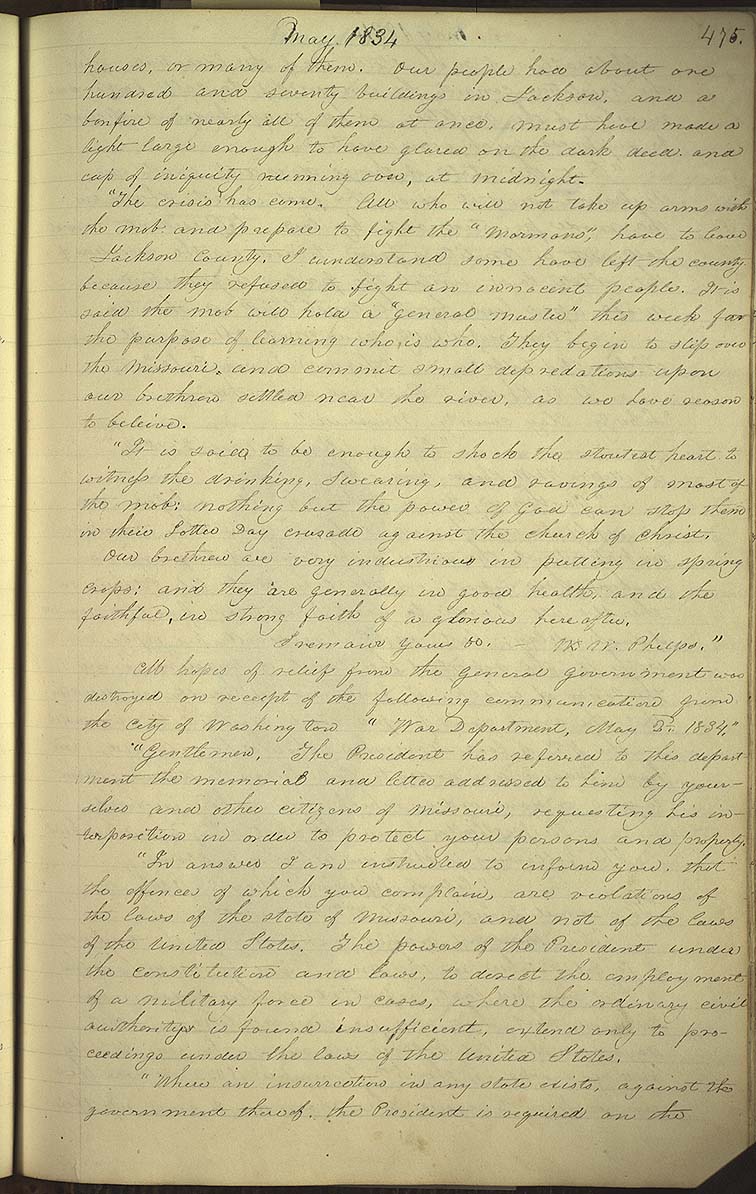 May 1834 475.
houses, or many of them. Our people had about one
hundred and seventy buildings in Jackson, and a
bonfire of nearly all of them at once, must have made a
light large enough to have glared on the dark deed and
cup of iniquity running over, at midnight.
"The crisis has come. All who will not take up arms with
the mob and prepare to fight the "Mormons", have to leave
Jackson County. I understand some have left the county
because they refused to fight an innocent people. It is
said the mob will hold a "general muster" this week for
the purpose of learning who is who. They begin to slip over
the Missouri, and commit small depredations upon
our brethren settled near the river, as we have reason
to beleive.
"It is said to be enough to shock the stoutest heart to
witness the drinking, swearing, and ravings of most of
the mob: nothing but the power of God can stop them
in their Latter Day crusade against the church of Christ.
Our brethren are very industrious in putting in spring
crops: and they are generally in good health, and the
faithful, in strong faith of a glorious hereafter.
I remain yours &c. — W. W. Phelps."
All hopes of relief from the general government was
destroyed on receipt of the following communication from
the City of Washington "War Department, May 2d. 1834."
"Gentlemen, The President has referred to this depart-
ment the memorial and letter addressed to him by your-
selves and other citizens of Missouri, requesting his in-
terposition in order to protect your persons and property.
"In answer I am instructed to inform you, that
the offences of which you complain, are violations of
the laws of the state of Missouri, and not of the laws
of the United States. The powers of the President under
the constitution and laws, to direct the employment
of a military force in cases, where the ordinary civil
authority is found insufficient, extend only to pro-
ceedings under the laws of the United States.
"Where an insurrection in any state exists, against the
government thereof. the President is required on the